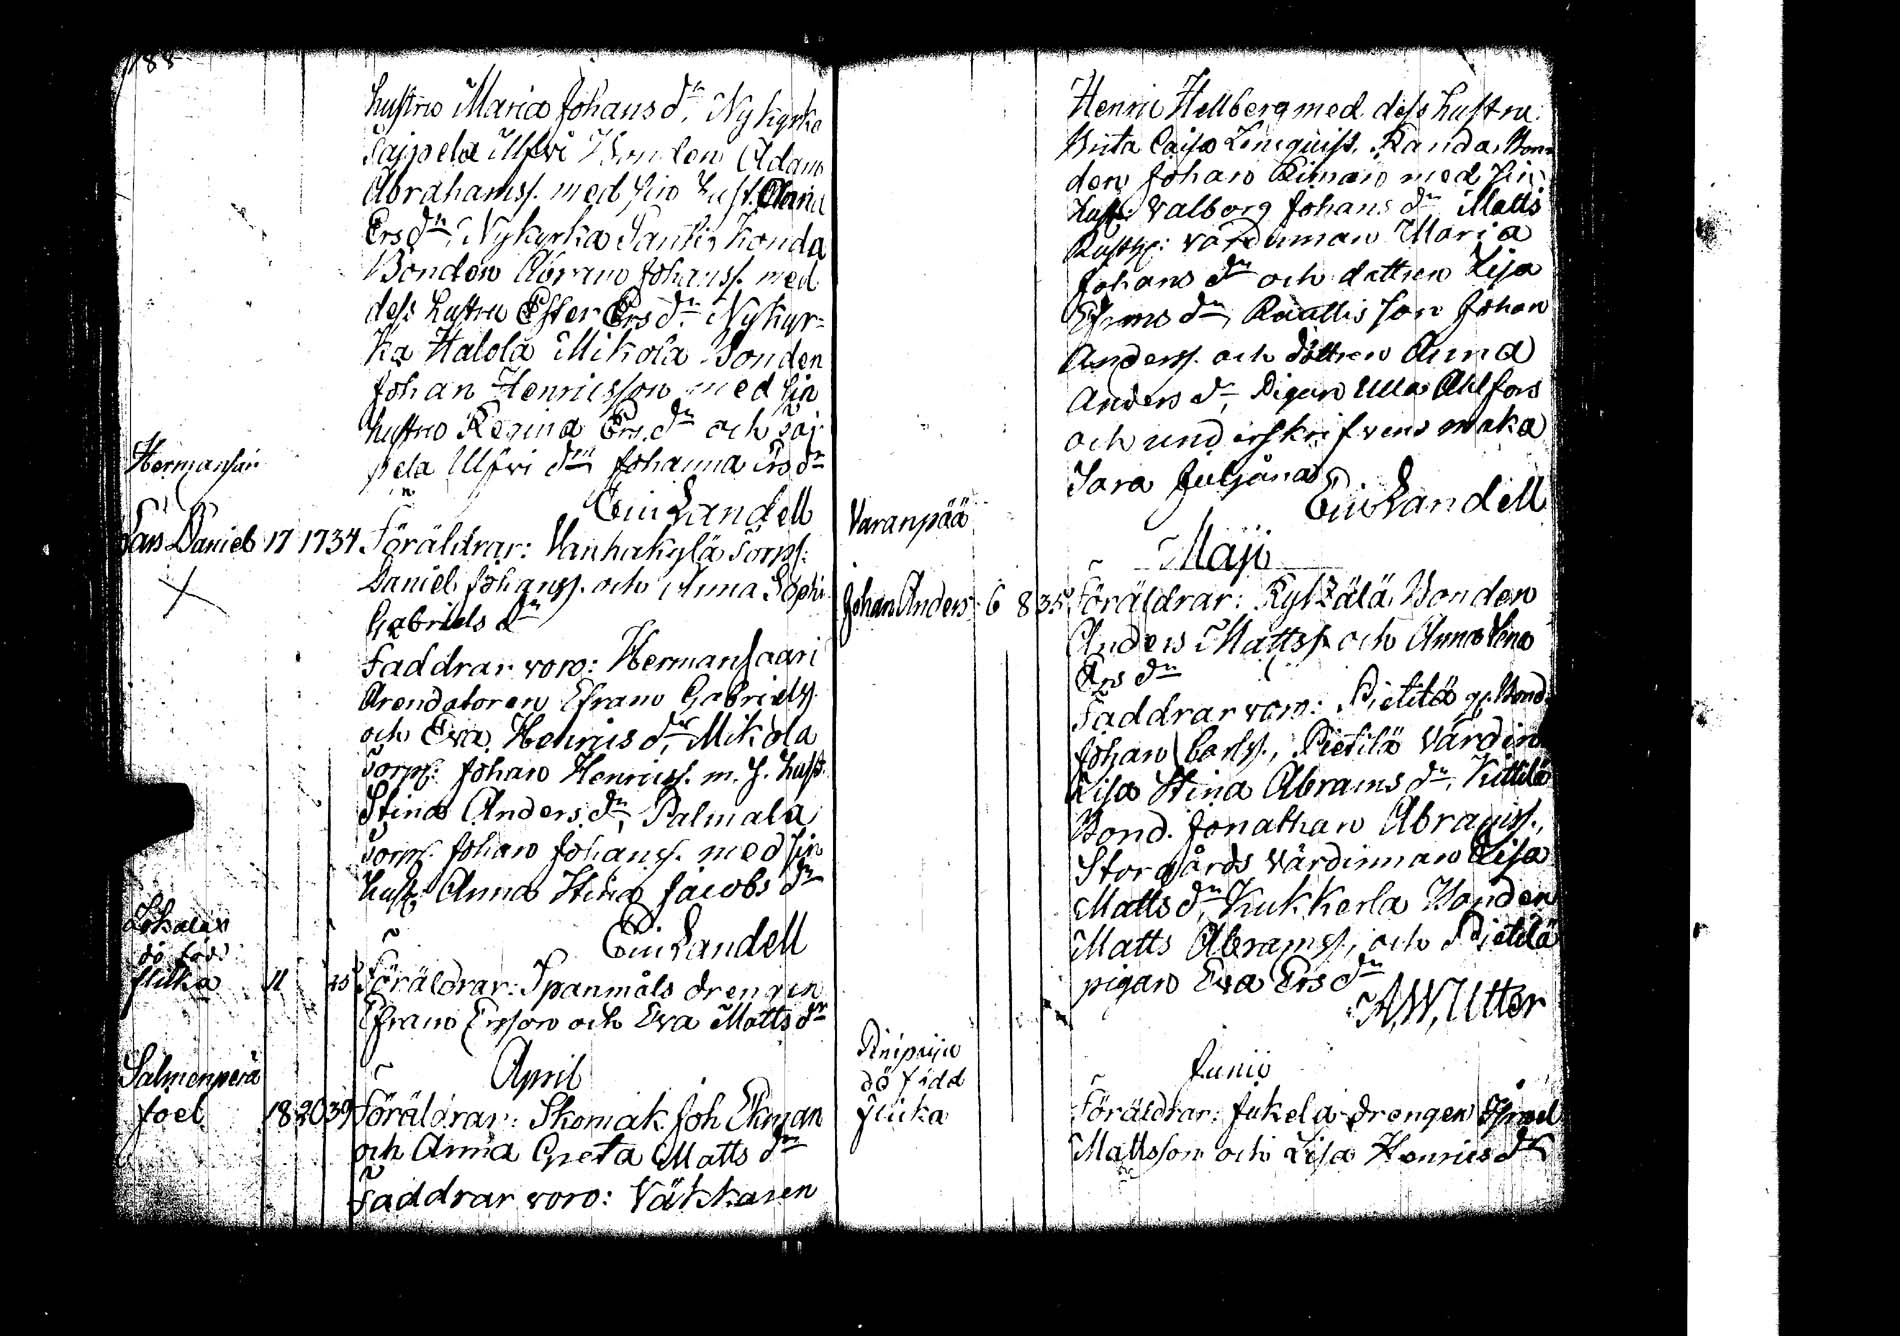 188
hustro Maria Johans dr, Nykyrko
Saippela Ulfvi Bonden Adam
Abrahamss. med sin hust. Maria
Ers dr, Nykyrka Santis Konda
Bonden Abram Johanss. med
dess hustru Ester Ers dr Nykyr=
ka Halola Mikola Bonden
Johan Henricsson med sin
hustro Regina Ers dr och Saj
pela Ulfvi dr Johanna Ers dr
Em Landell
Hermansari
Lars Daniel 17 17 34 Föräldrar: Vanhakylä Torps:
Daniel Johanss. och Anna Sophi
Gabriels dr
Faddrar voro: Hermansaari
Arendatoren Efraim Gabrielss
och Eva Henrics dr, Mikola
Torp: Johan Henricss. m. s. hust
Stina Anders dr, Palmala
Torp. Johan Johanss. med sin
hust. Anna Stina Jacobs dr
Em Landell
Lokalax
dö född
flicka 11 45 Föräldrar: Spanmåls drengen
Efraim Ersson och Eva Matts dr
April
Salmenperä
Joel 18 20 39 Föräldrar: Skomak. Joh Ekman
och Anna Greta Matts dr
Faddrar voro: Väkkaren
Henric Hellberg med dess hustru
Brita Caisa Linquist, Randa Bon=
den Johan Riman med sin
hust: Valborg Johans dr Matts
Rusth: värdinnan Maria
Johans dr och dottren Lisa
Efraims dr, Raattis son Johan
Anderss. och dottren Anna
Anders dr, Pigan Ulla Ahlfors
och underskrifvens maka
Sara Juliana
Em Landell
Varanpää
Maji
Johan Anders 6 8 35 Föräldrar: Kylzälä Bonden
Anders Mattss och Anna Lena
Ers dr
Faddrar voro: Pietilä gl. Bond.
Johan Carlss., Pietilä Värdin
Lisa Stina Abrams dr, Kittilä
Bond. Jonathan Abramss.,
Storgårds värdinnan Lisa
Matts dr, Kukkerla Bonden
Matts Abramss, och Pietilä
pigan Eva Ers dr
A, W, Utter
Pinipaju
dö född
flicka
Junii
Föräldrar: Jukela drengen Israel
Mattsson och Lisa Henrics dr